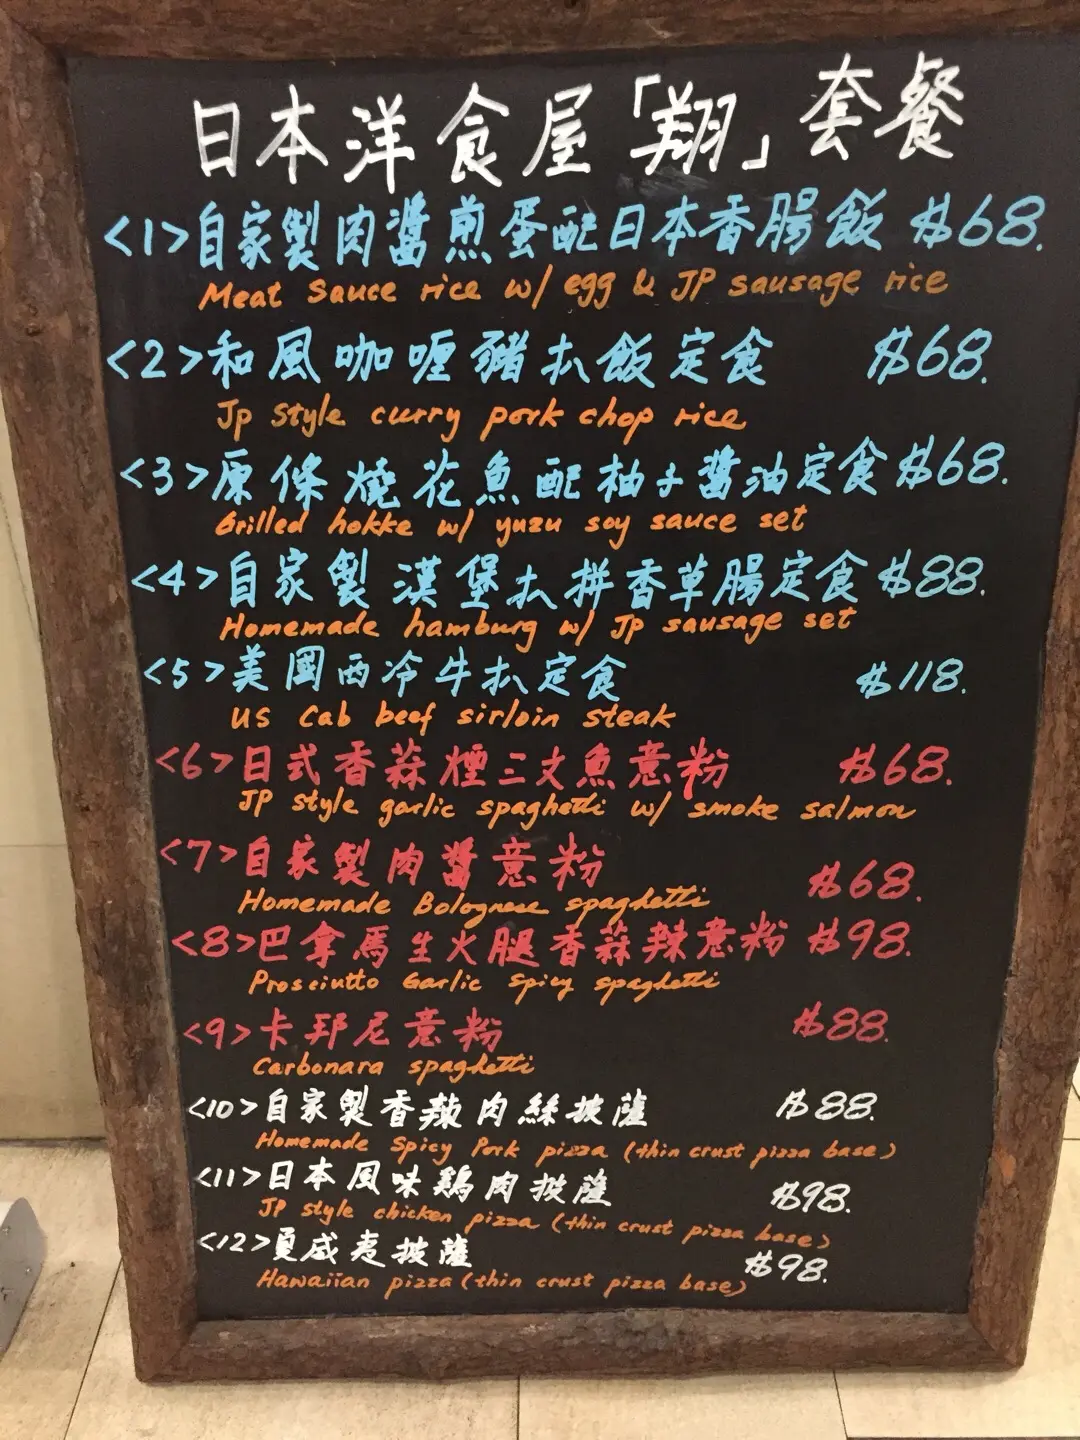 日本洋食屋「翔」套餐
<1>自家製肉醬煎蛋配日本香腸飯 $68.
Meat Sauce rice w/ egg & JP sausage rice
<2>和風咖喱豬扒飯定食 $68.
Jp Style curry pork chop rice
<3>原條燒花魚配柚子醬油定食 $68.
Grilled hokke w/ yuzu soy sauce set
<4>自家製漢堡扒拼香草腸定食 $88.
Homemade hamburg w/ Jp sausage set
<5>美國西冷牛扒定食 $118.
US Cab beef sirloin steak
<6>日式香蒜煙三文魚意粉 $68.
JP style garlic spaghetti w/ smoke salmon
<7>自家製肉醬意粉 $68.
Homemade Bolognese spaghetti
<8>巴拿馬生火腿香蒜辣意粉 $98.
Prosciutto Garlic Spicy spaghetti
<9>卡邦尼意粉 $88.
Carbonara spaghetti
<10>自家製香辣肉絲披薩 $88.
Homemade Spicy Pork pizza (thin crust pizza base)
<11>日本風味鶏肉披薩 $98.
JP style chicken pizza (thin crust pizza base)
<12>夏威夷披薩 $98.
Hawaiian pizza (thin crust pizza base)